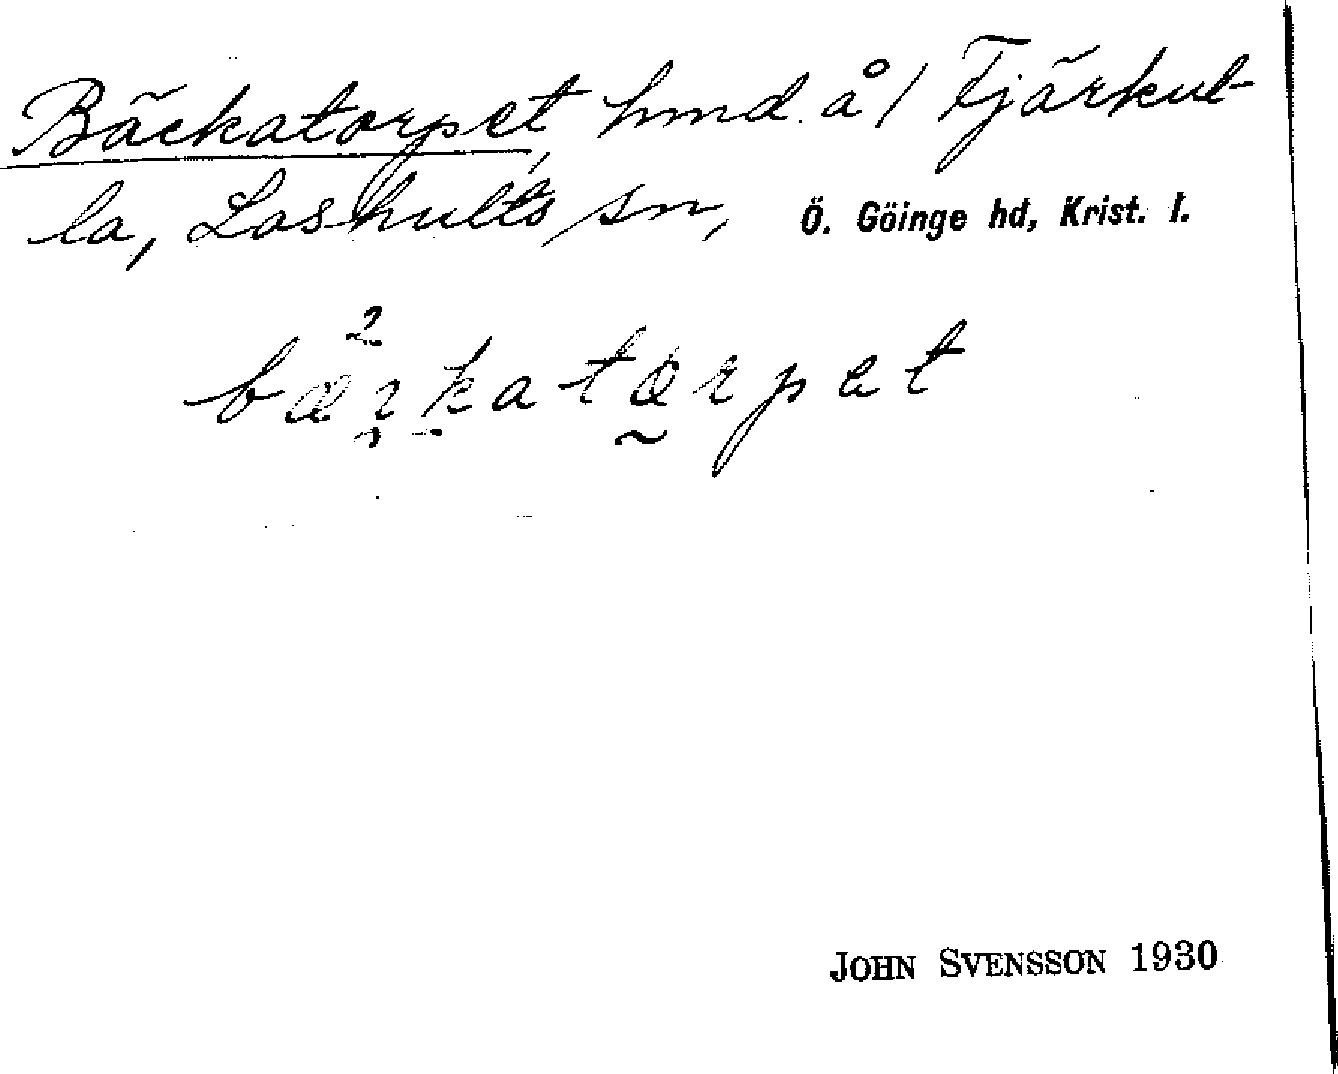 Bäckatorpet, hmd. å 1 Fjärkul-
la, Loshults sn, Ö. Göinge hd, Krist. l.
JOHN SVENSSON 1930